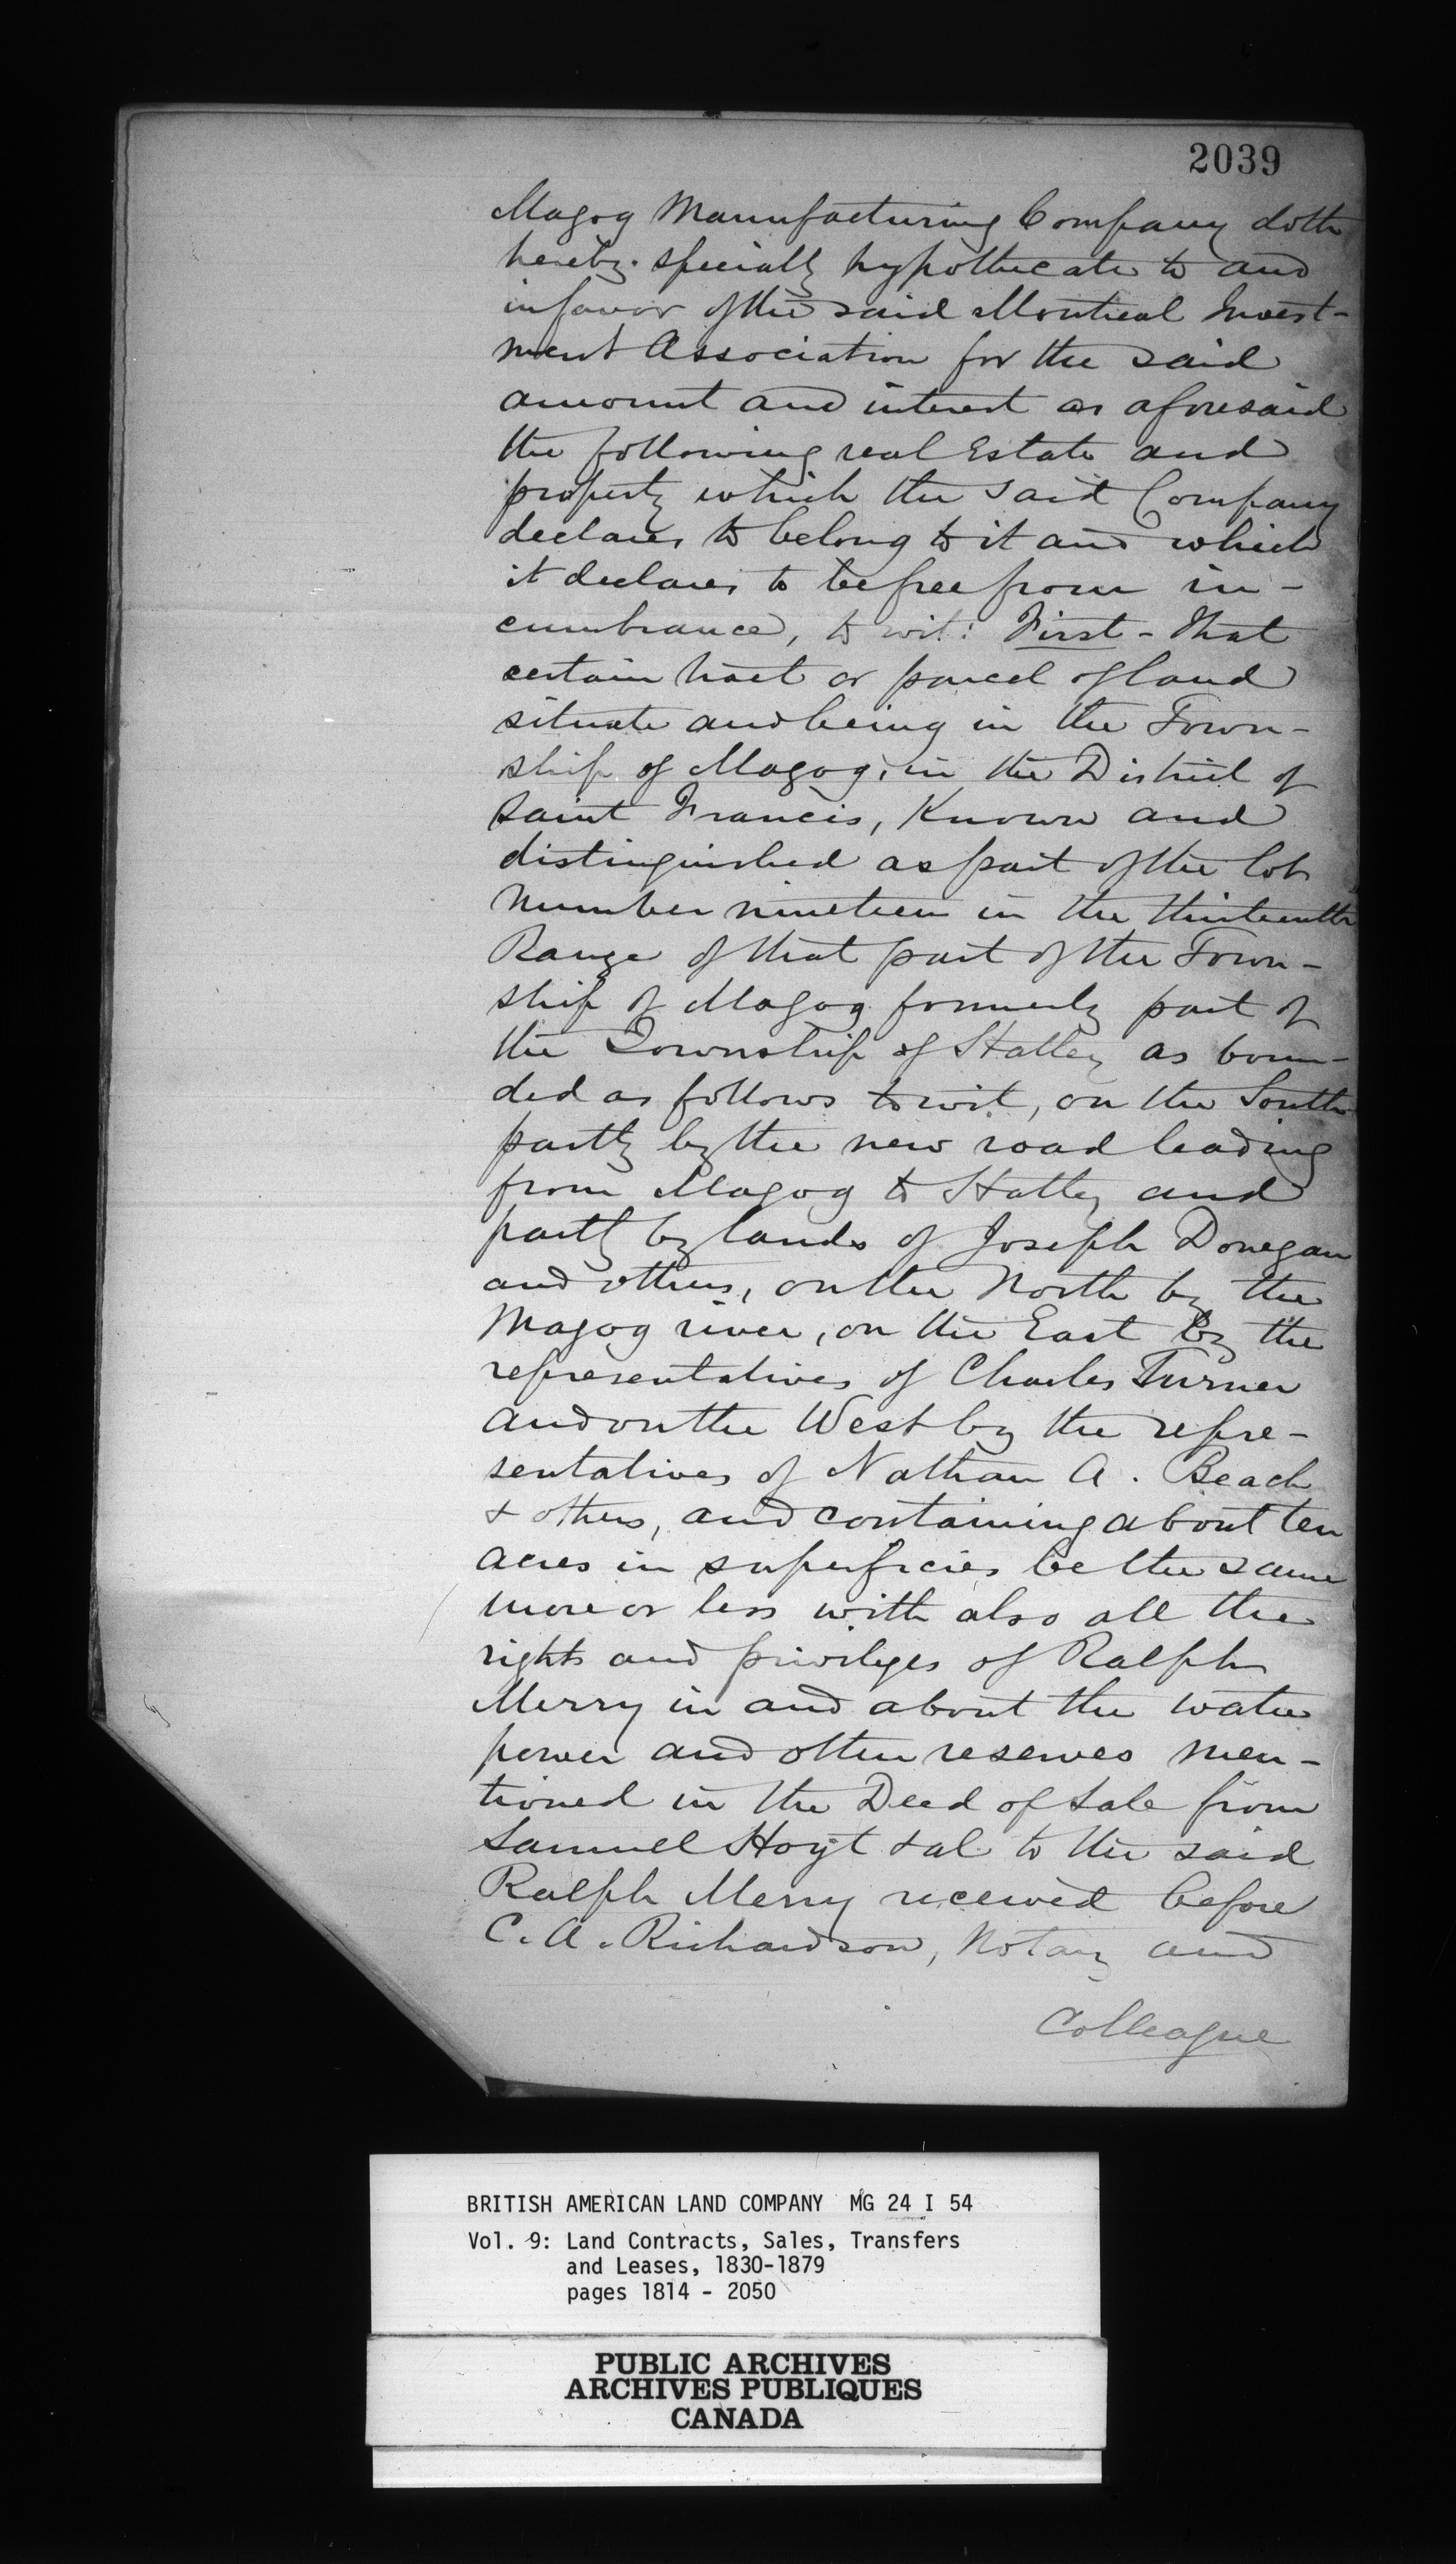 2039
Magog Manufacturing Company doth
hereby specially hypothecate to and
in favor of the said Montreal Invest-
ment Association for the said
amount and interest as aforesaid
the following real Estate and
property which the said Company
declares to belong to it and which
it declares to be free from in-
cumbrance, to wit: First - That
certain tract or parcel of land
situate and being in the Town-
ship of Magog, in the District of
Saint Francis, Known and
distinguished as part of the lot
number nineteen in the thirteenth
Range of that part of the Town-
ship of Magog formerly part of
the Township of Hatley as boun-
ded as follows to wit, on the South
partly by the new road leading
from Magog to Hatley and
partly by lands of Joseph Donegan
and others, on the North by the
Magog river, on the East by the
representatives of Charles Turner
and on the West by the repre-
sentatives of Nathan A. Beach
& others, and containing about ten
acres in superficies be the same
more or less with also all the
rights and priviliges of Ralph
Merry in and about the water
power and other reserves men-
tioned in the Deed of Sale from
Samuel Hoyt & al to the said
Ralph Merry received before
C. A. Richardson, Notary and
Colleague
BRITISH AMERICAN LAND COMPANY MG 24 I 54
Vol. 9: Land Contracts, Sales, Transfers
and Leases, 1830-1879
pages 1814 - 2050
PUBLIC ARCHIVES
ARCHIVES PUBLIQUES
CANADA